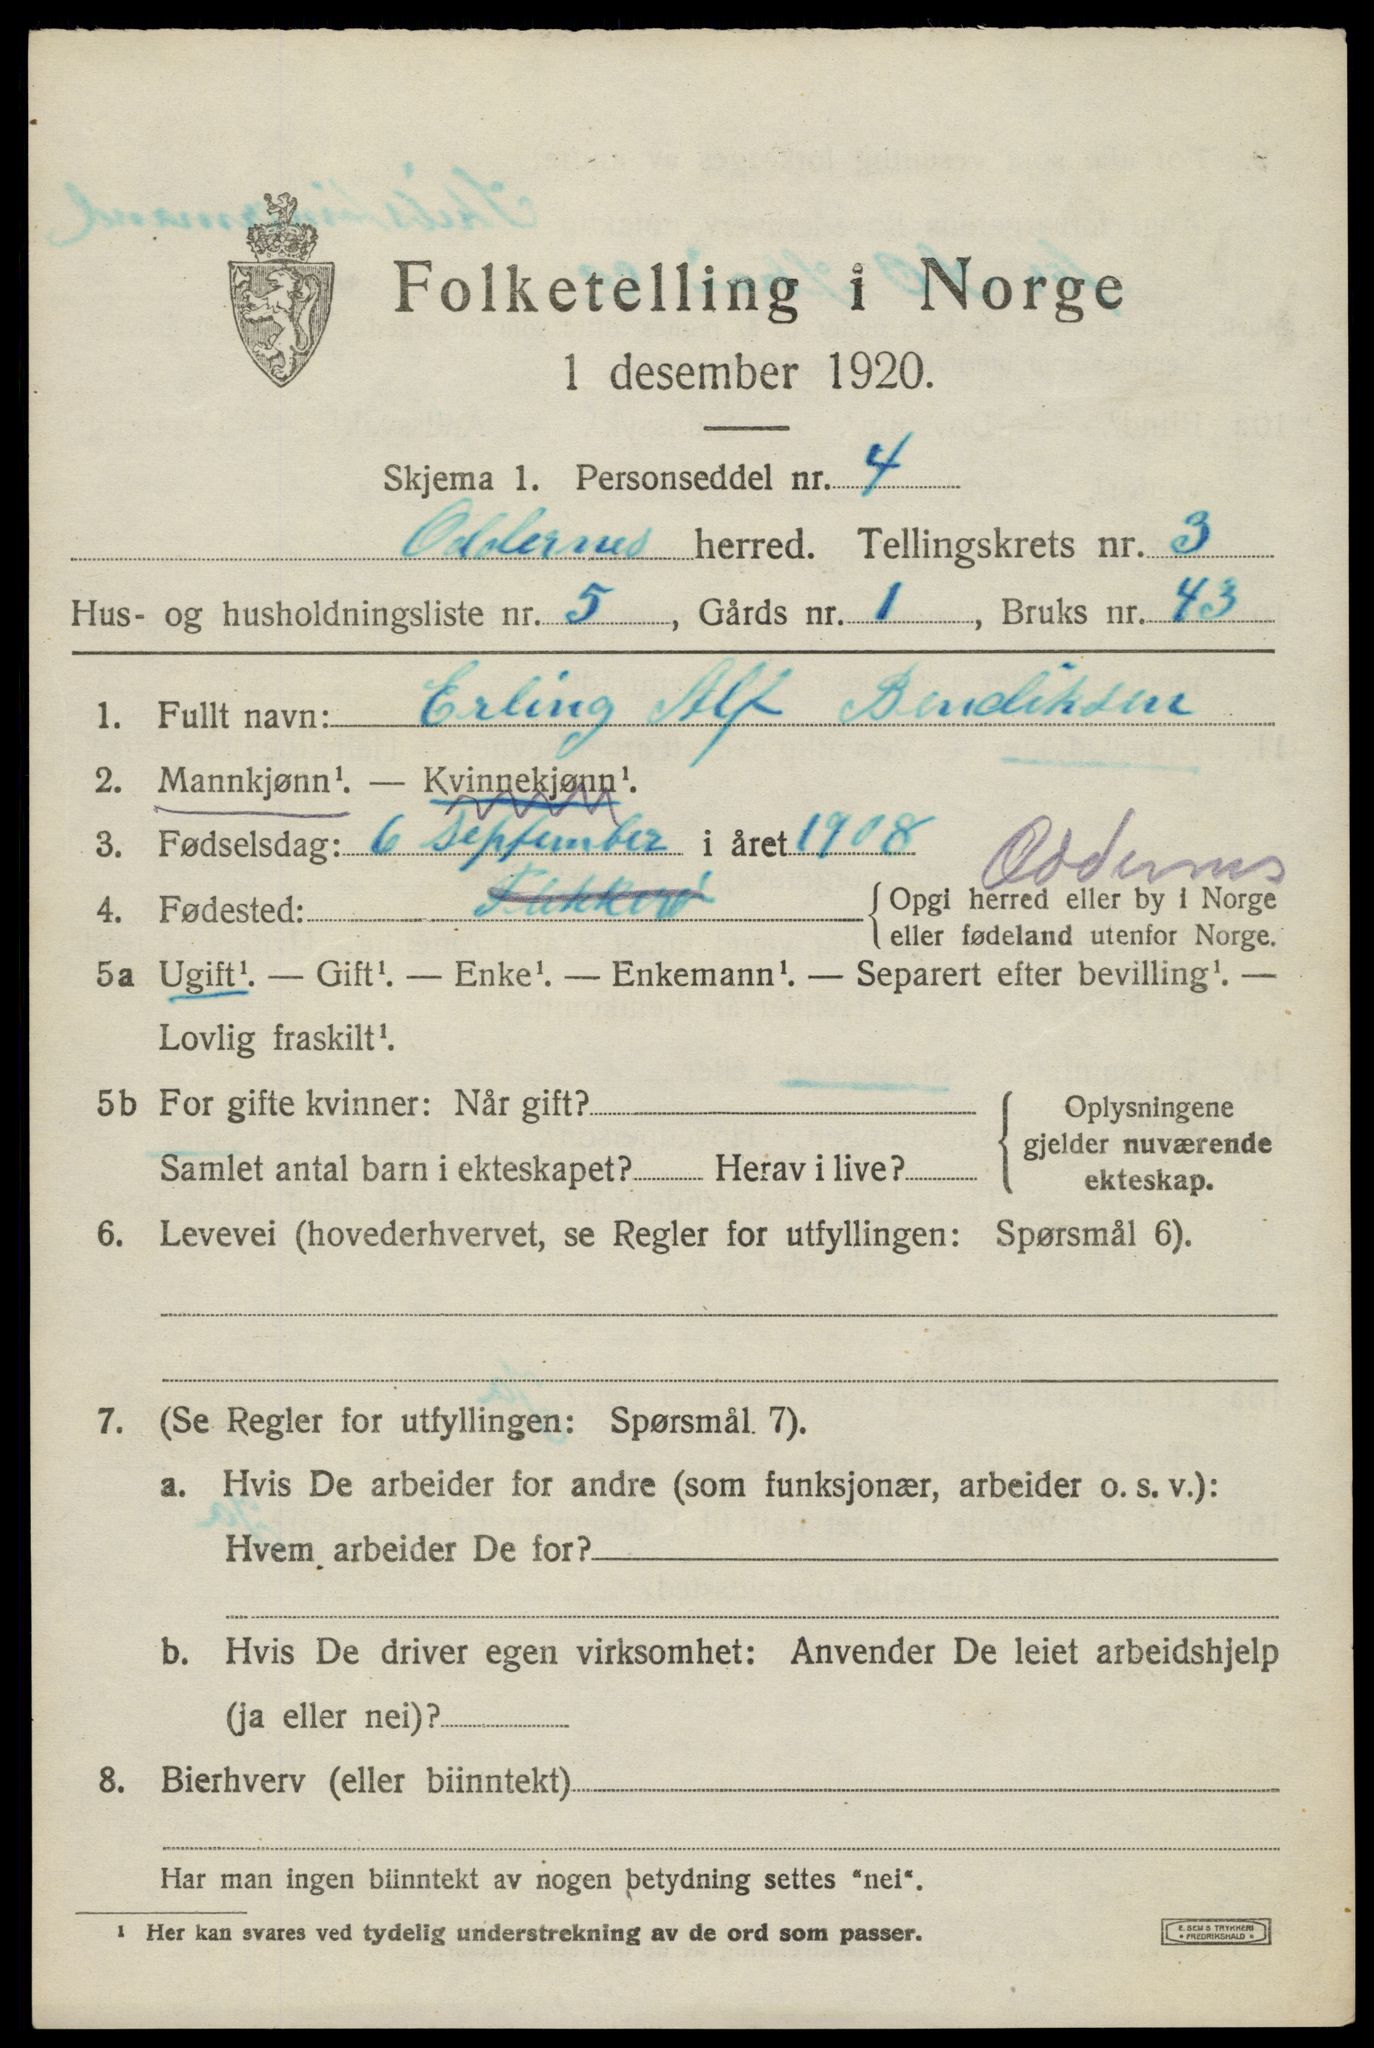 Folketelling i Norge
1 desember 1920.
Skjema 1. Personseddel nr. 4
Oddernes herred. Tellingskrets nr. 3
Hus- og husholdningsliste nr. 5, Gårds nr. 1, Bruks nr. 43
1. Fullt navn: Erling Alf Bendiksen
2. Mannkjønn¹. — Kvinnekjønn¹.
3. Fødselsdag: 6 September i året 1908
Oddernes
4. Fødested: Flekkerø { Opgi herred eller by i Norge
eller fødeland utenfor Norge.
5a Ugift¹. — Gift¹. — Enke¹. — Enkemann¹. — Separert efter bevilling¹. —
Lovlig fraskilt¹.
5b For gifte kvinner: Når gift?
Samlet antal barn i ekteskapet? Herav i live?
Oplysningene
gjelder nuværende
ekteskap.
6. Levevei (hovederhvervet, se Regler for utfyllingen: Spørsmål 6).
7. (Se Regler for utfyllingen: Spørsmål 7).
a. Hvis De arbeider for andre (som funksjonær, arbeider o. s. v.):
Hvem arbeider De for?
b. Hvis De driver egen virksomhet: Anvender De leiet arbeidshjelp
(ja eller nei)?
8. Bierhverv (eller biinntekt)
Har man ingen biinntekt av nogen betydning settes "nei".
¹ Her kan svares ved tydelig understrekning av de ord som passer.
E. SEM S TRYKKERI
* FREDRIKSHALD *